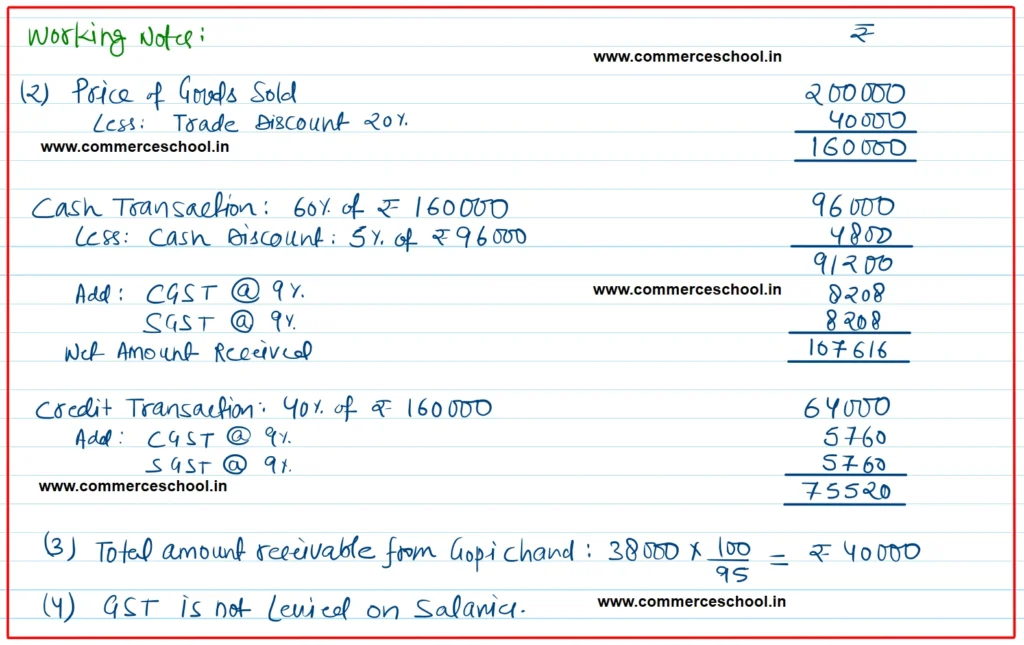 Working Notes: ₹
www.commerceschool.in
(2) Price of Goods Sold 200000
Less: Trade Discount 20% 40000
www.commerceschool.in 160000
Cash Transaction: 60% of ₹ 160000 96000
Less: Cash Discount: 5% of ₹ 96000 4800
91200
Add: CGST @ 9% www.commerceschool.in 8208
SGST @ 9% 8208
Net Amount Received 107616
Credit Transaction: 40% of ₹ 160000 64000
Add: CGST @ 9% 5760
SGST @ 9% 5760
www.commerceschool.in 75520
(3) Total amount receivable from Gopichand: 38000 × 100/95 = ₹ 40000
(4) GST is not Levied on Salaries. www.commerceschool.in